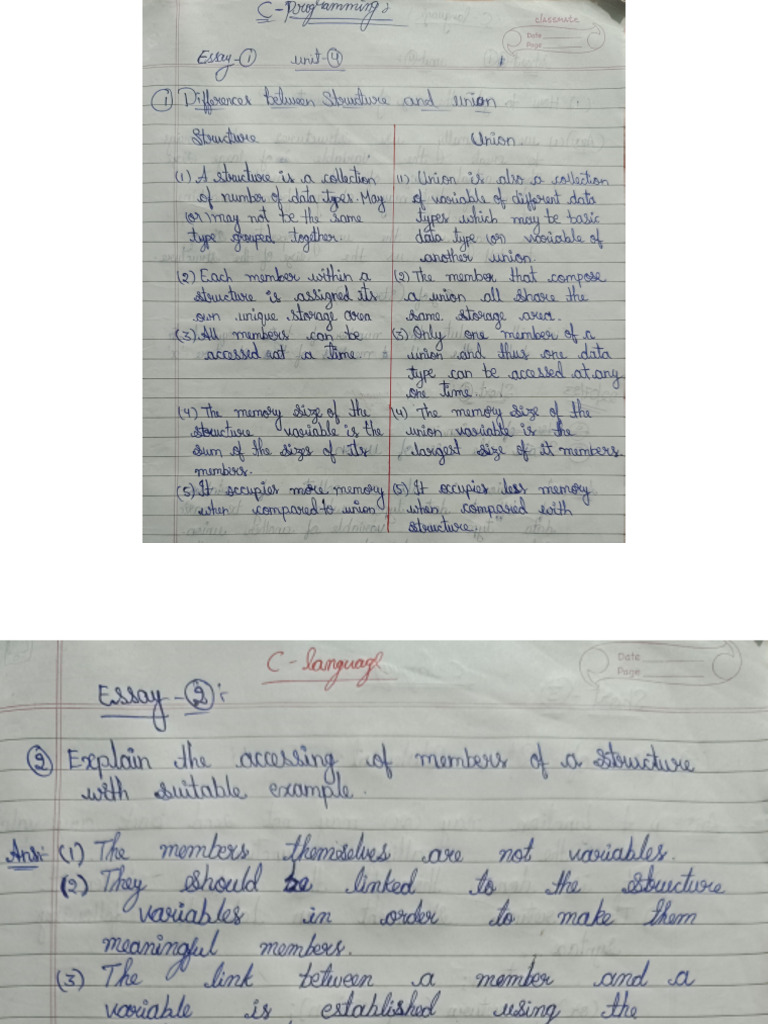 C-Programming:
classmate
Date
Page
Essay-① unit-④
① Differences between Structure and union
Structure
(1) A structure is a collection
of number of data types. May
(or) may not be the same
type grouped together.
(2) Each member within a
structure is assigned its
own unique storage area
(3) All members can be
accessed at a time
(4) The memory size of the
structure variable is the
sum of the sizes of its
members.
(5) It occupies more memory
when compared to union
Union
(1) Union is also a collection
of variable of different data
types which may be basic
data type (or) variable of
another union.
(2) The member that compose
a union all share the
same storage area.
(3) Only one member of a
union and thus one data
type can be accessed at any
one time.
(4) The memory size of the
union variable is the
largest size of it members
(5) It occupies less memory
when compared with
structure.
C-language
Date
Page
Essay-②:-
② Explain the accessing of members of a structure
with suitable example.
Ans:- (1) The members themselves are not variables.
(2) They should be linked to the structure
variables in order to make them
meaningful members.
(3) The link between a member and a
variable is established using the